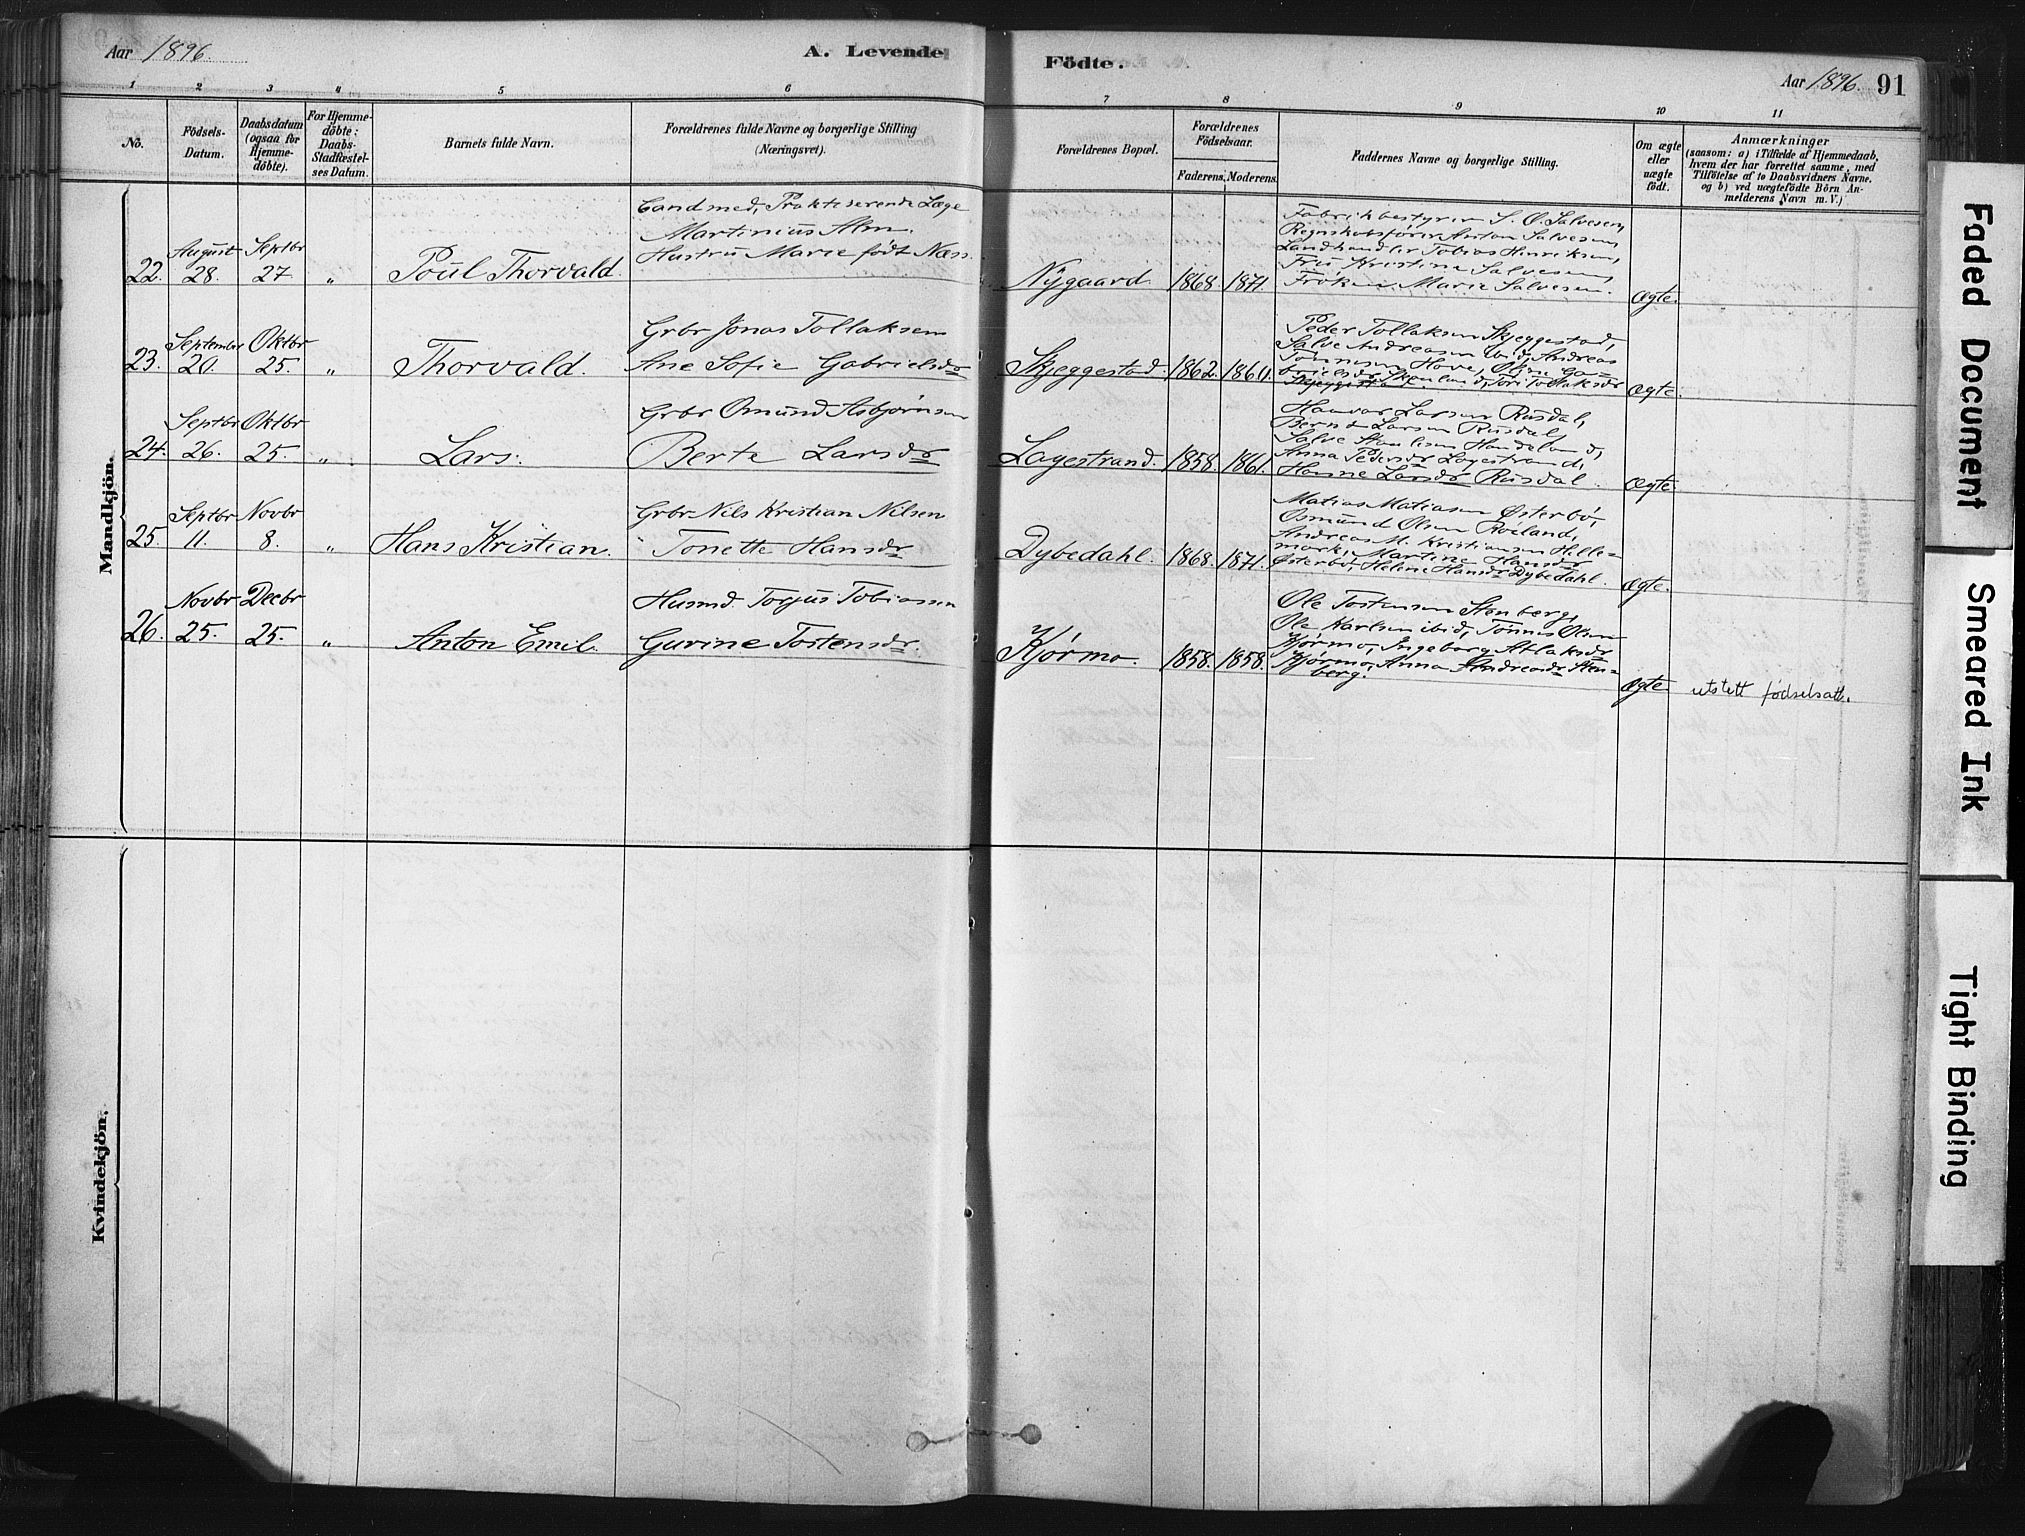 Aar 1896.
A. Levende Födte.
Aar 1896. 91
1 2 3 4 5 6 7 8 9 10 11
No.
Födsels-
Datum.
Daabsdatum
(ogsaa for
Hjemme-
döbte).
For Hjemme-
döbte:
Daabs-
Stadfæstel-
ses Datum.
Barnets fulde Navn.
Forældrenes fulde Navne og borgerlige Stilling
(Næringsvei).
Forældrenes Bopæl.
Forældrenes
Födselsaar.
Faderens. Moderens.
Faddernes Navne og borgerlige Stilling.
Om ægte
eller
uægte
födt.
Anmærkninger
(saasom: a) i Tilfælde af Hjemmedaab,
hvem der har forrettet samme, med
Tilföielse af to Daabsvidners Navne.
og b) ved uægtefödte Börn An-
melderens Navn m. V.)
Mandkjön.
22. August 28. Septbr 27 „ Poul Thorvald.
Cand med, Praktiserende Læge
Martinius Alm.
Hustru Marie født Næss
Nygaard 1868. 1871.
Fabrikbestyrer S. O. Salvesen,
Regnskabsfører Anton Salvesen,
Landhandler Tobias Henriksen,
Fru Kristine Salvesen,
Frøken Marie Salvesen.
Ægte.
23. September 20. Oktbr 25. „ Thorvald.
Grbr Jonas Tollaksen
Ane Sofie Gabrielsdr
Skjeggestad 1862.
Peder Tollaksen Skjeggestad,
Salve Andreasen ibid, Andreas
Tønnesen Hove,
Ægte.
24. Septbr 26. Oktbr 25. „ Lars.
Grbr Omund Asbjørnsen
Berte Larsdr
Lagestrand. 1858. 1861.
Larsen Rusdal,
Bernt Larsen Rusdal,
Salve
Anna Pedersdr Lagestrand,
Hanne Larsdr Rusdal.
Ægte.
25. Septbr 11. Novbr 8. „ Hans Kristian.
Grbr Nils Kristian Nilsen
Tonette Hansdr
Dybedahl. 1868. 1871.
Matias Matiasen Østerbø,
Osmund Olsen Røiland,
Andreas M. Kristiansen Helle-
mark, Martine Hansdr
Østerbø, Helene Hansdr Dybedahl.
Ægte.
26. Novbr 25. Decbr 25. „ Anton Emil.
Husmd Torjus Tobiassen
Gurine Tostensdr.
Kjørmo. 1858. 1858.
Ole Tostensen Stenberg,
Ole Karlsen ibid, Tønnes Olsen
Kjørmo, Ingeborg Atlaksdr
Kjørmo, Anna Andreasdr Sten-
berg.
Ægte
utstett fødselsatt.
Kvindekjön.
Faded Document
Smeared Ink
Tight Binding